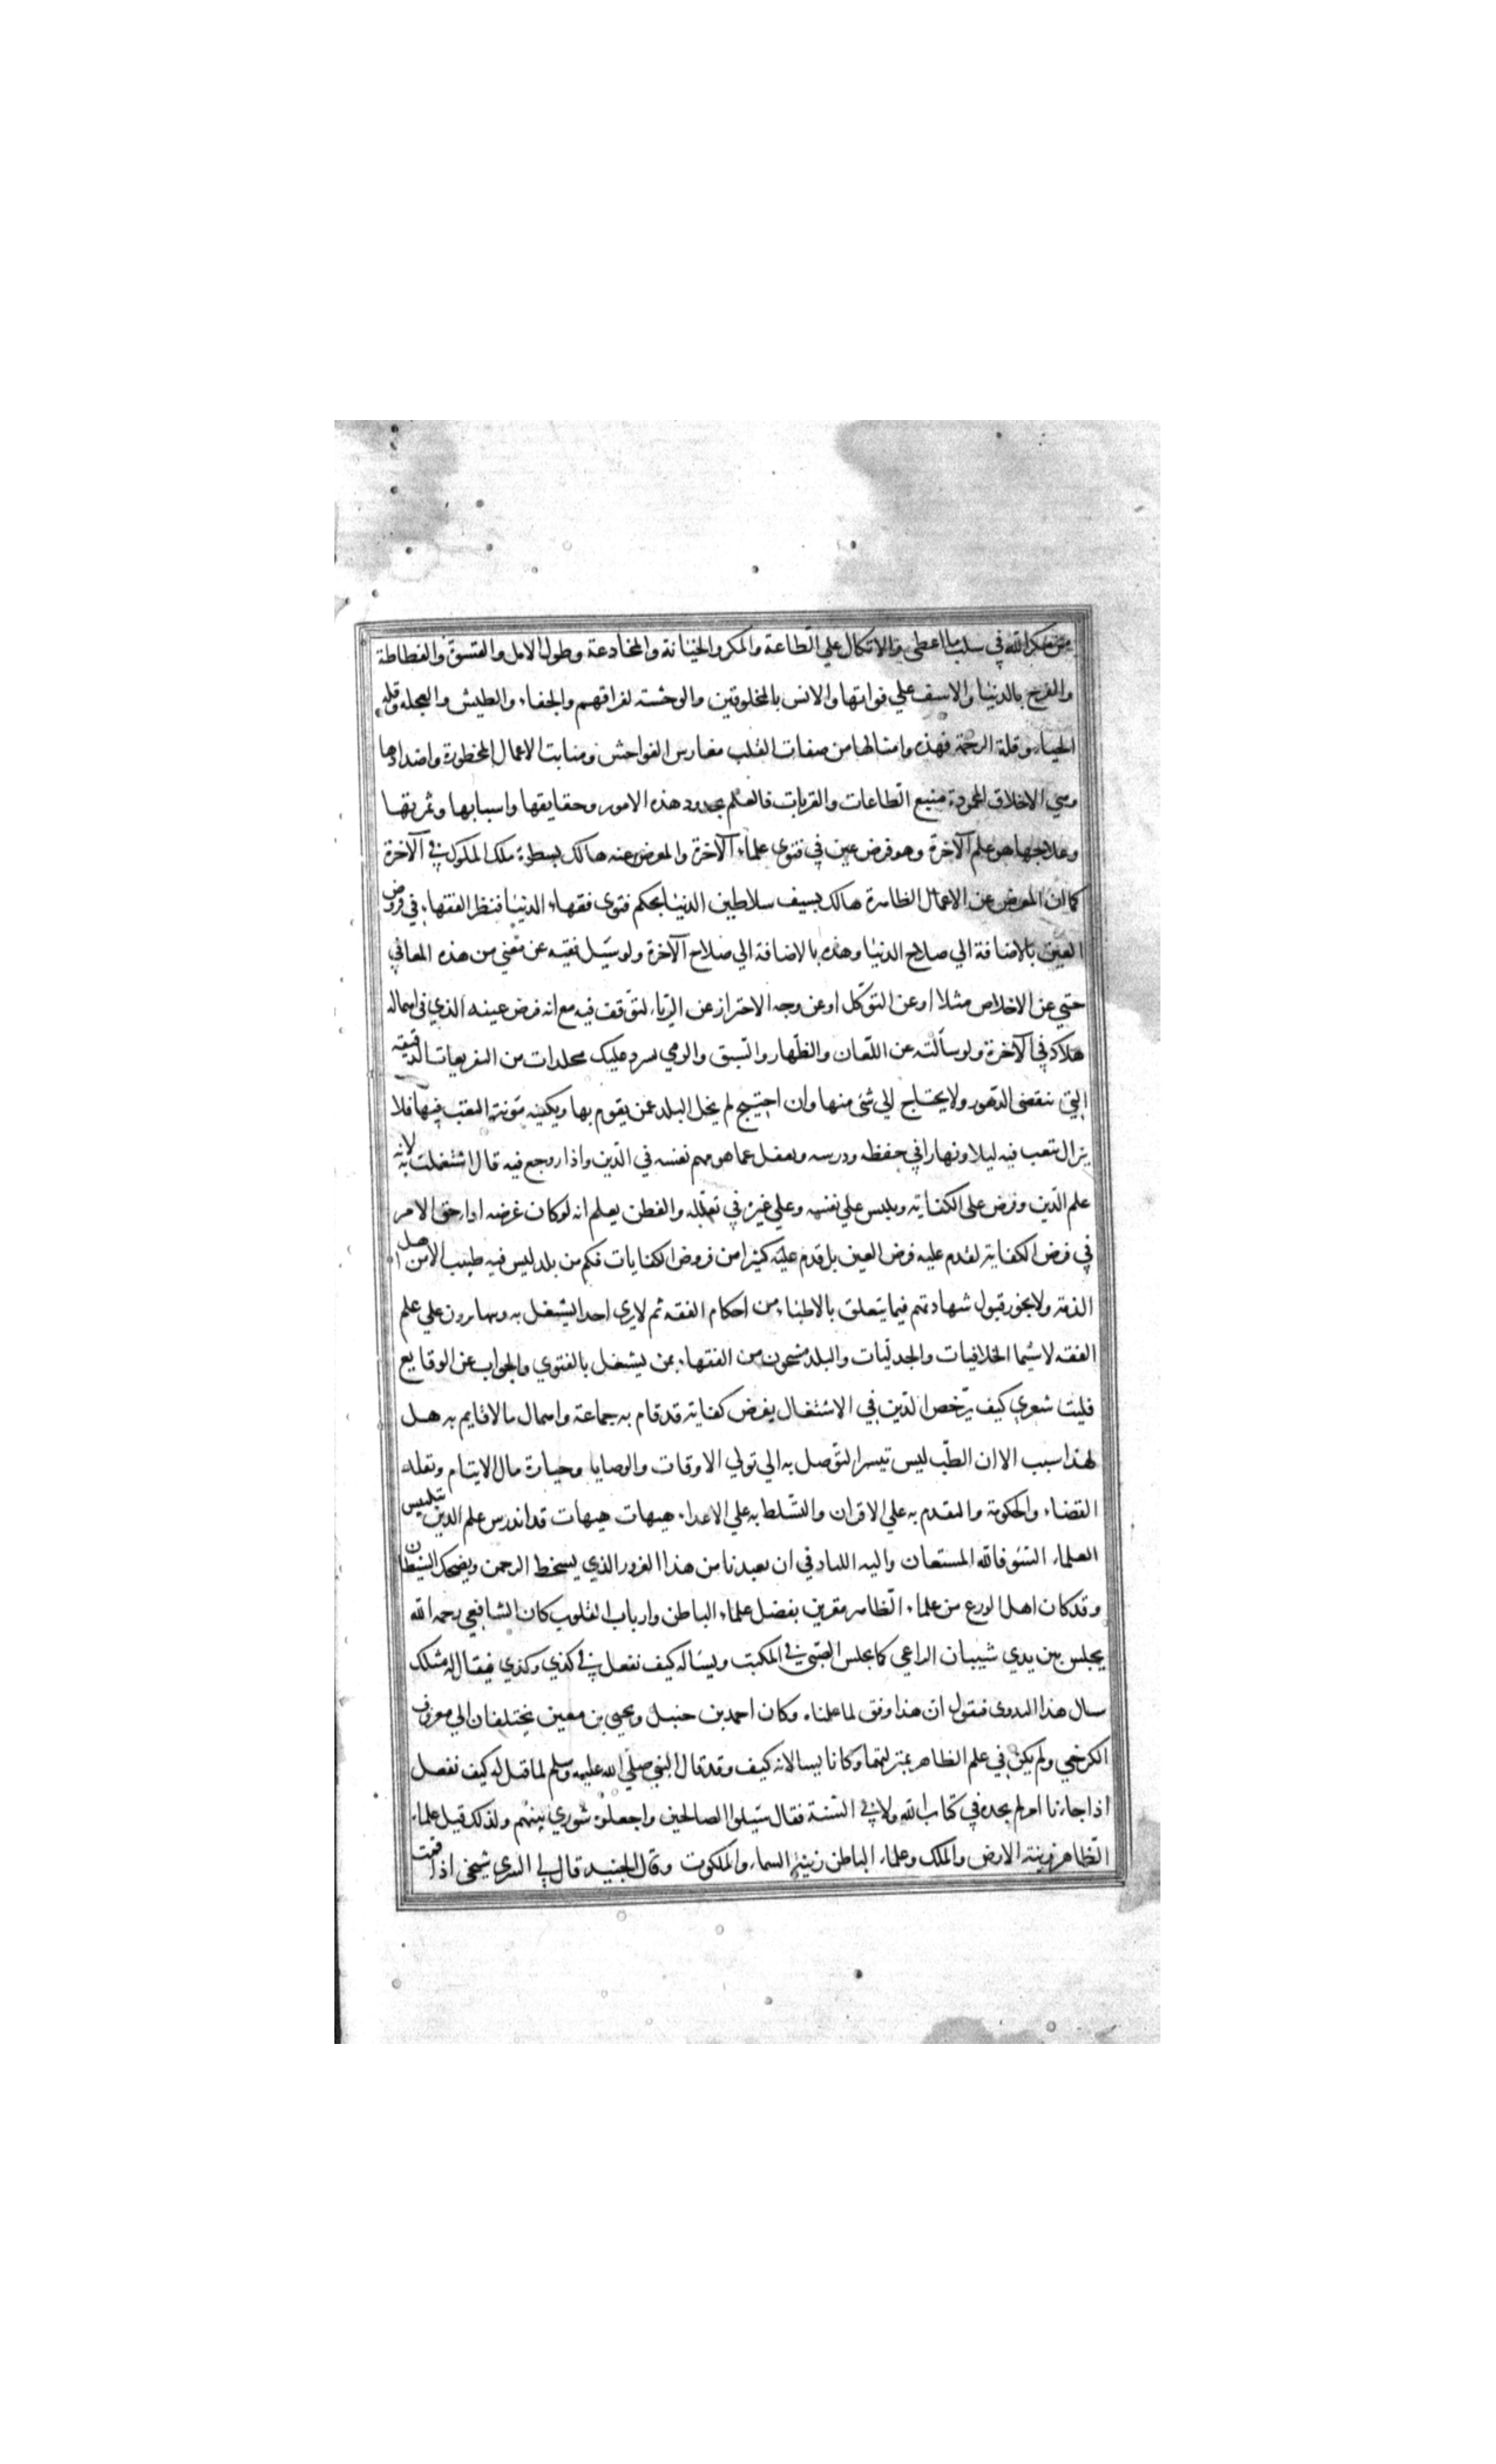 من مكر الله في سلب ما اعطي والاتكال علي الطاعة والمكر والخيانة والمخادعة وطول الامل والقسوة والفظاظة
والفرح بالدنيا والاسف علي فواتها والانس بالمخلوقين والوحشة لفراقهم والجفاء والطيش والعجلة وقلة
الحياء وقلة الرحمة فهذه وامثالها من صفات القلب مغارس الفواحش ومنابت الاعمال المحظورة واضدادها
وهي الاخلاق المحمودة منبع الطاعات والقربات فالعلم بحدود هذه الامور وحقايقها واسبابها وثمرتها
وعلاجها هو علم الآخرة وهو فرض عين في فتوي علماء الآخرة والمعرض عنه هالك بسطوة ملك الملوك في الآخرة
كما ان المعرض عن الاعمال الظاهرة هالك بسيف سلاطين الدنيا بحكم فتوى فقهاء الدنيا فنظر الفقهاء في فروض
العين بالاضافة الي صلاح الدنيا وهذه بالاضافة الي صلاح الآخرة ولو سئل فقيه عن معني من هذه المعاني
حتي عن الاخلاص مثلا او عن التوكل او عن وجه الاحتراز عن الرياء لتوقف فيه مع انه فرض عينه الذي في اهماله
هلاكه في الآخرة ولو سألته عن اللعان والظهار والسبق والرمي لسرد عليك مجلدات من التفريعات الدقيقة
التي تنقضي الدهور ولا يحتاج الي شئ منها وان احتيج لم يخل البلد عمن يقوم بها ويكفيه مؤنة التعب فيها فلا
يزال يتعب فيه ليلا ونهارا في حفظه ودرسه ويغفل عما هو مهم نفسه في الدين واذا روجع فيه قال اشتغلت به لانه
علم الدين وفرض علي الكفاية ويلبس علي نفسه وعلي غيره في تعلله والفطن يعلم انه لو كان غرضه ادا حق الامر
في فرض الكفاية لقدم عليه فرض العين بل قدم عليه كثيرا من فروض الكفايات فكم من بلد ليس فيه طبيب الا من اهل
الذمة ولا يجوز قبول شهادتهم فيما يتعلق بالاطباء من احكام الفقه ثم لا يرى احدا يشتغل به ويتهاترون علي علم
الفقه لا سيما الخلافيات والجدليات والبلد مشحون من الفقهاء بمن يشتغل بالفتوي والجواب عن الوقايع
فليت شعري كيف يرخص الدين في الاشتغال بفرض كفاية قد قام به جماعة واهمال ما لا قايم به هل
لهذا سبب الا ان الطب ليس تيسر التوصل به الي تولي الاوقات والوصايا وحيازة مال الايتام وتقلد
القضاء والحكومة والتقدم به علي الاقران والتسلط به علي الاعداء هيهات هيهات قد اندرس علم الدين بتلبيس
العلماء السوء فالله المستعان واليه اللياذ في ان يعيذنا من هذا الغرور الذي يسخط الرحمن ويضحك الشيطان
وقد كان اهل الورع من علماء الظاهر مقرين بفضل علماء الباطن وارباب القلوب كان الشافعي رحمه الله
يجلس بين يدي شيبان الراعي كما يجلس الصبي في المكتب ويساله كيف نفعل في كذي وكذي فيقال له مثلك
سال هذا البدوي فيقول ان هذا وفق لما علمناه وكان احمد بن حنبل ويحيي بن معين يختلفان الي معروف
الكرخي ولم يكن في علم الظاهر بمنزلتهما وكانا يسالانه كيف وقد قال النبي صلي الله عليه وسلم لما قيل له كيف نفعل
اذا جاءنا امر لم نجده في كتاب الله ولا في السنة فقال سئلوا الصالحين واجعلوه شوري بينهم ولذلك قيل علماء
الظاهر زينة الارض والملك وعلماء الباطن زينة السماء والملكوت وقال الجنيد قال لي السري شيخي اذا قمت